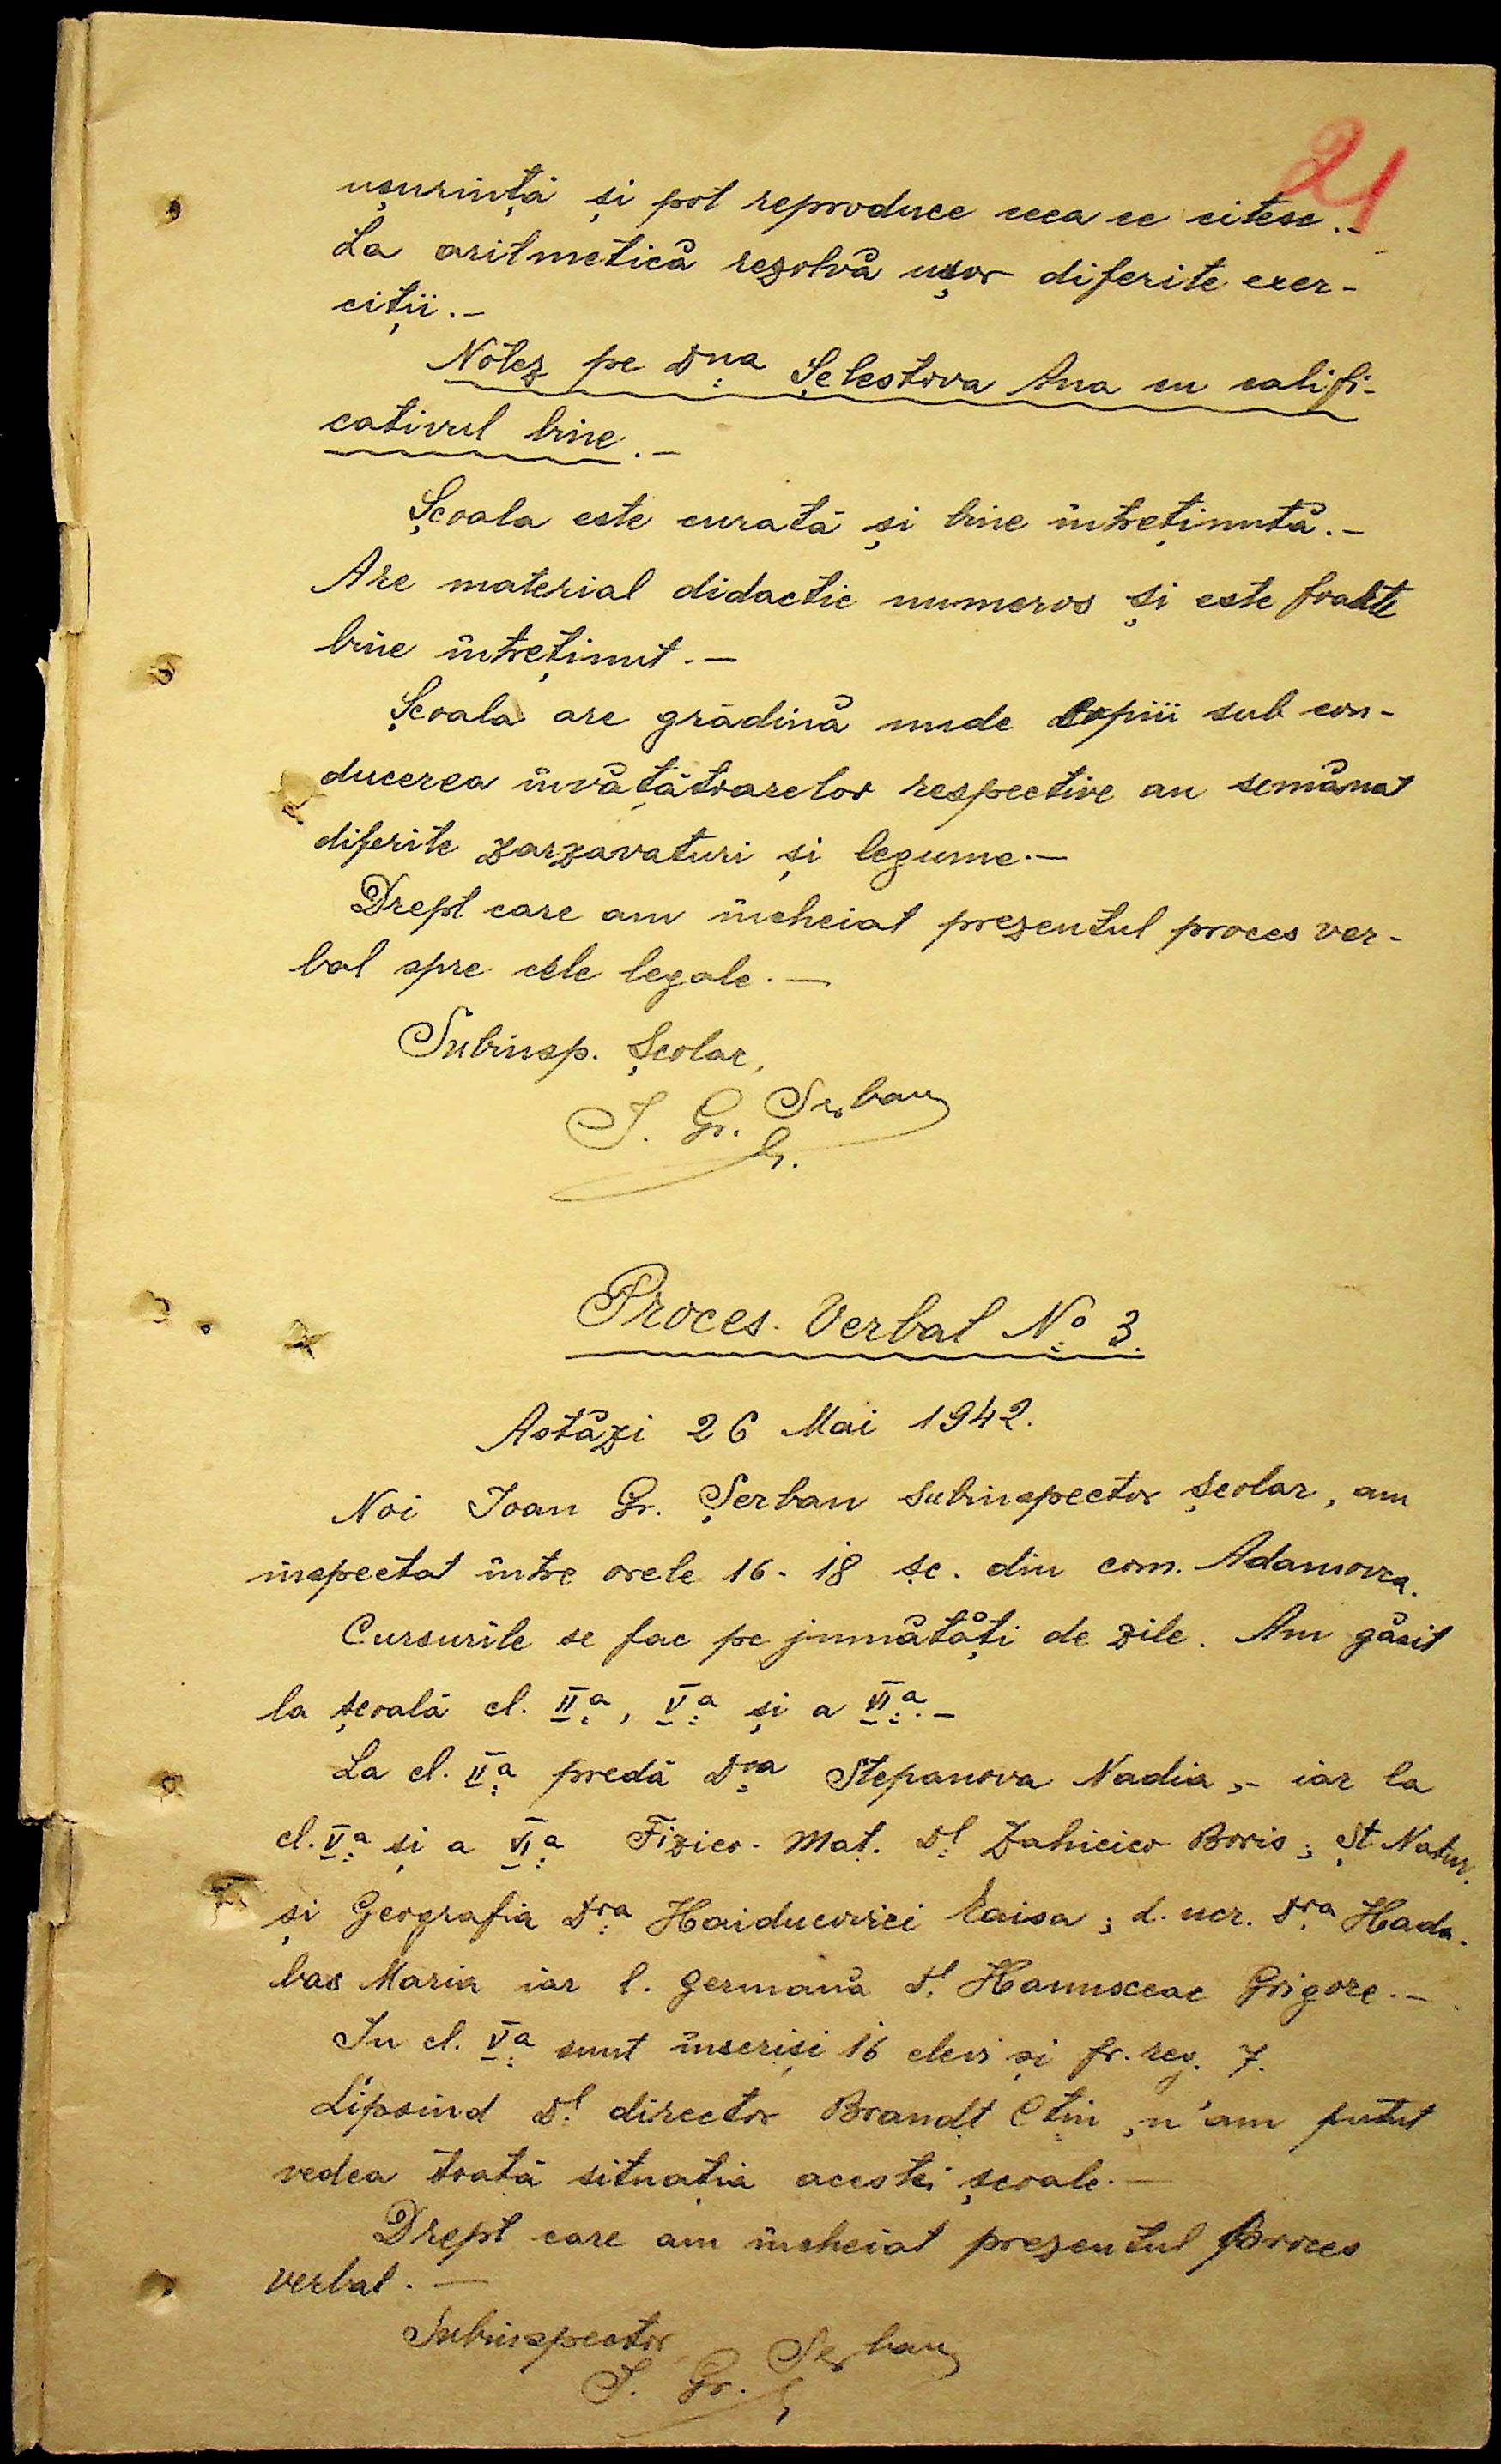 21
ușurință și pot reproduce ceea ce citesc.-
La aritmetică rezolvă ușor diferite exer-
ciții.-
Notez pe Dna Șelestova Ana cu califi-
cativul bine.-
Școala este curată și bine întreținută.-
Are material didactic numeros și este foarte
bine întreținut.-
Școala are grădină unde copiii sub con-
ducerea învățătoarelor respective au semănat
diferite zarzavaturi și legume.-
Drept care am încheiat prezentul proces ver-
bal spre cele legale.-
Subinsp. Școlar,
I. Gr. Șerban
Proces-Verbal No 3.
Astăzi 26 Mai 1942.
Noi Ioan Gr. Șerban subinspector școlar, am
inspectat între orele 16-18 șc. din com. Adamovca.
Cursurile se fac pe jumătăți de zile. Am găsit
la școală cl. II a, V a și a VI a.-
La cl. II a predă Dra Stepanova Nadia,- iar la
cl. V a și a VI a Fizico-Mat. Dl Zahicico Boris; Șt Natur.
și Geografia Dra Haiducovici Raisa; d. ucr. Dra Hada-
bas Maria iar l. germană Dl. Hanusceac Grigore.-
In cl. V a sunt înscriși 16 elevi și fr. reg. 7.
Lipsind Dl. director Brandt Ctin, n'am putut
vedea toată situația acestei școale.-
Drept care am încheiat prezentul proces
verbal.-
Subinspector,
I. Gr. Șerban